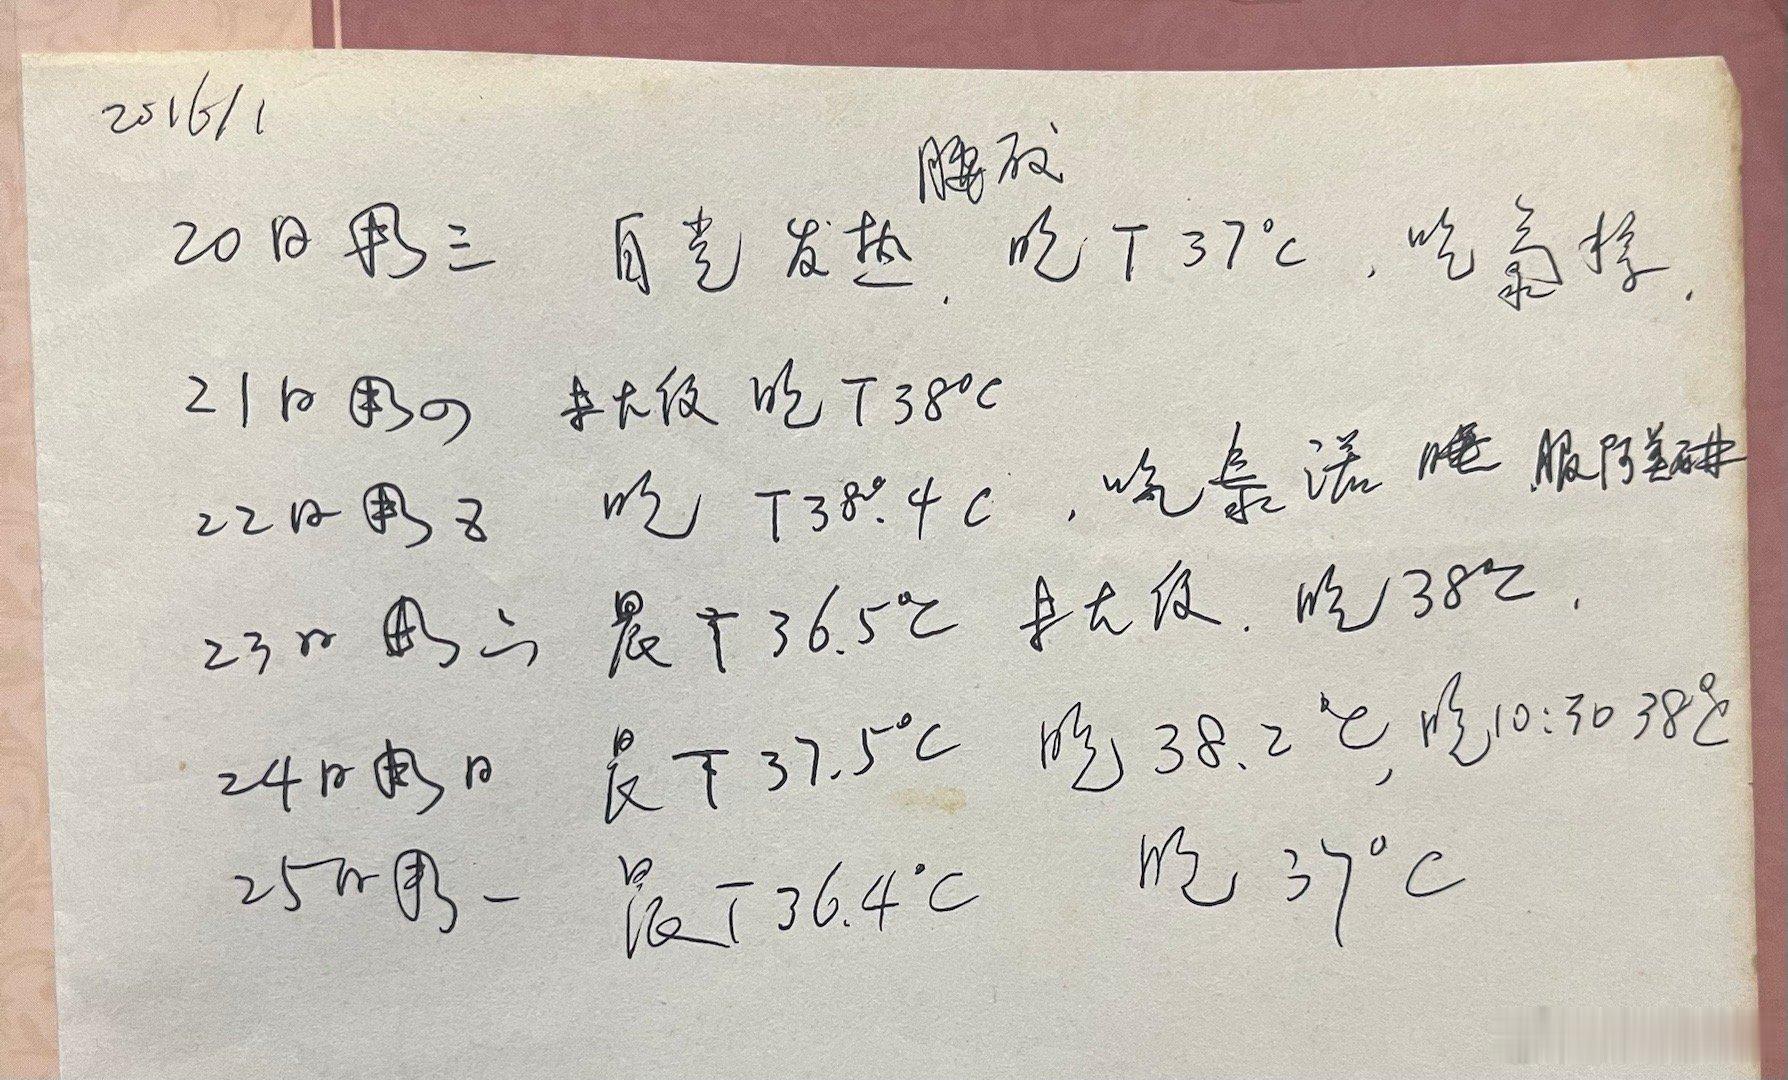 2016/1
腰酸
20日周三 自觉发热，晚T37°C，吃氨
21日周四 未大便 晚T38°C
22日周五 晚 T38°.4C，吃泉诺 睡 服阿美
23日周六 晨T36.5°C 未大便．晚38°C．
24日周日 晨T37.5°C 晚38.2°C，晚10:30 38°C
25日周一 晨T36.4°C 晚37°C